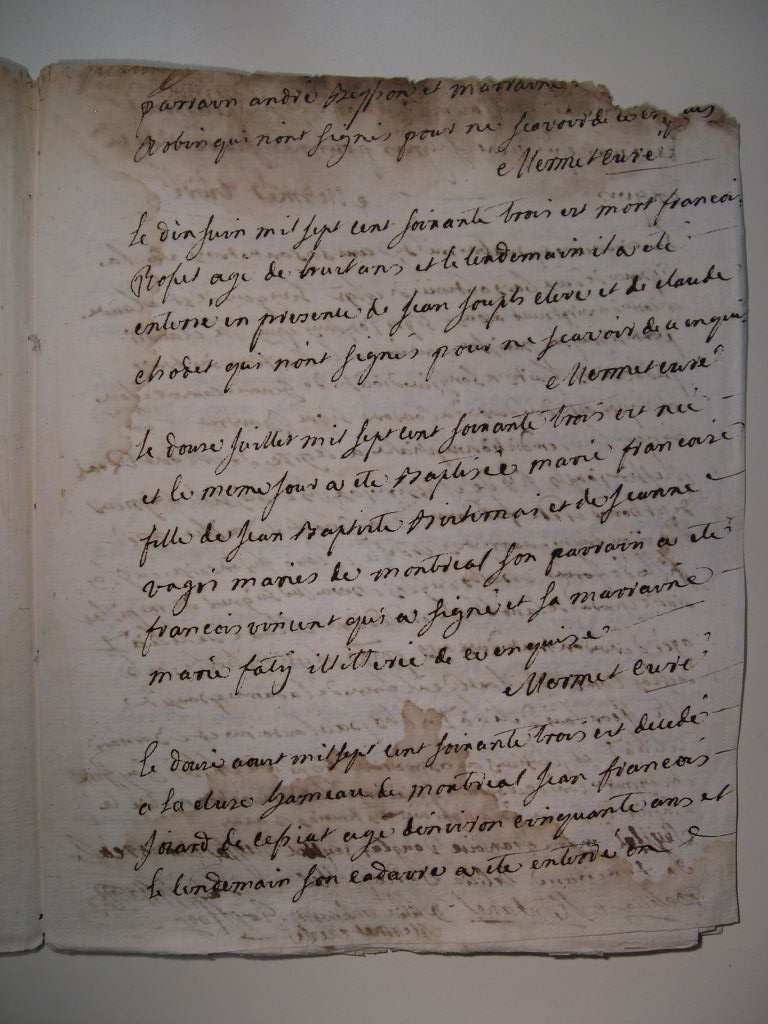 parrain andré Reyson et marraine
Robin qui nont signés pour ne scavoir de ce enquis
Mermet curé
Le dix juin mil sept cent soixante trois est mort francois
Roset agé de huit ans et le lendemain il a été
enterré en presence de jean joseph eleve et de claude
chodet qui nont signés pour ne scavoir de ce enquis
Mermet curé
Le douze juillet mil sept cent soixante trois est née
et le meme jour a ete Baptisée marie francoise
fille de jean Baptiste et de jeanne
mariés de montreal son parrain a ete
francois vincent qui a signé et sa marraine
marie faty illitterée de ce enquise
Mermet curé
Le douze aoust mil sept cent soixante trois est decedé
a la cluse hameau de montreal jean francois
joiard de agé denviron cinquante ans et
le lendemain son cadavre a ete enterré en